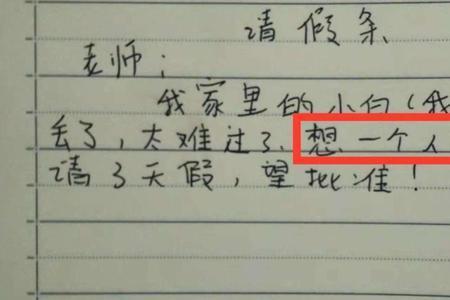 请假条
老师：
我家里的小白（我
丢了，太难过了、想一个人
请3天假，望批准！